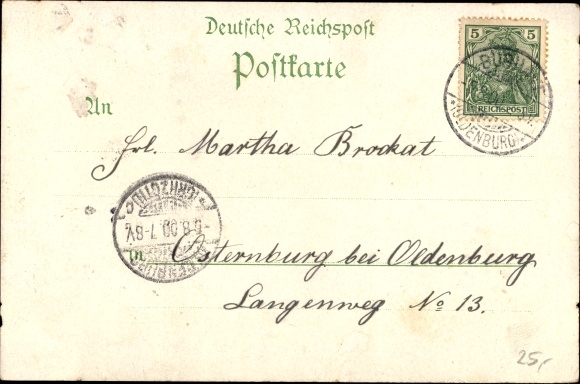 Deutsche Reichspost
Postkarte
5 5
REICHSPOST
OLDENBURG
An
Frl. Martha Brockat
5.8.00.7-8V.
in Osternburg bei Oldenburg
Langenweg No 13.
25,-